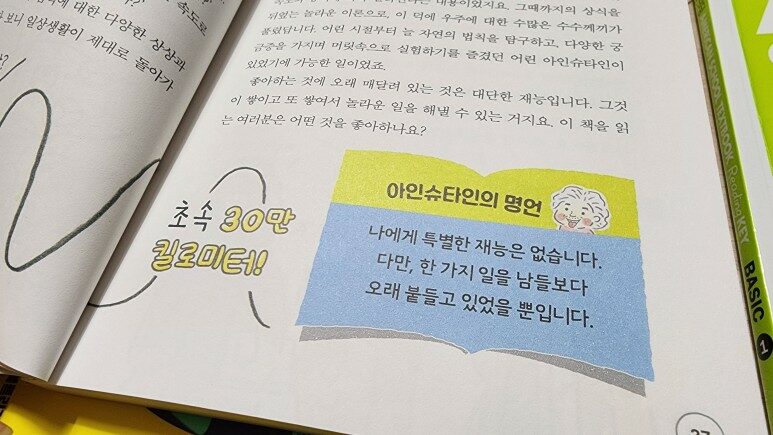 속도로
대한 다양한 상상과
보니 일상생활이 제대로 돌아가
?
뒤엎는 놀라운 이론으로, 이 덕에 우주에 대한 수많은 수수께끼가
풀렸답니다. 어린 시절부터 늘 자연의 법칙을 탐구하고, 다양한 궁
금증을 가지며 머릿속으로 실험하기를 즐겼던 어린 아인슈타인이
있었기에 가능한 일이었죠.
좋아하는 것에 오래 매달려 있는 것은 대단한 재능입니다. 그것
이 쌓이고 또 쌓여서 놀라운 일을 해낼 수 있는 거지요. 이 책을 읽
는 여러분은 어떤 것을 좋아하나요?
초속 30만
킬로미터!
아인슈타인의 명언
나에게 특별한 재능은 없습니다.
다만, 한 가지 일을 남들보다
오래 붙들고 있었을 뿐입니다.
AMERICAN SCHOOL TEXTBOOK Reading KEY
BASIC 1